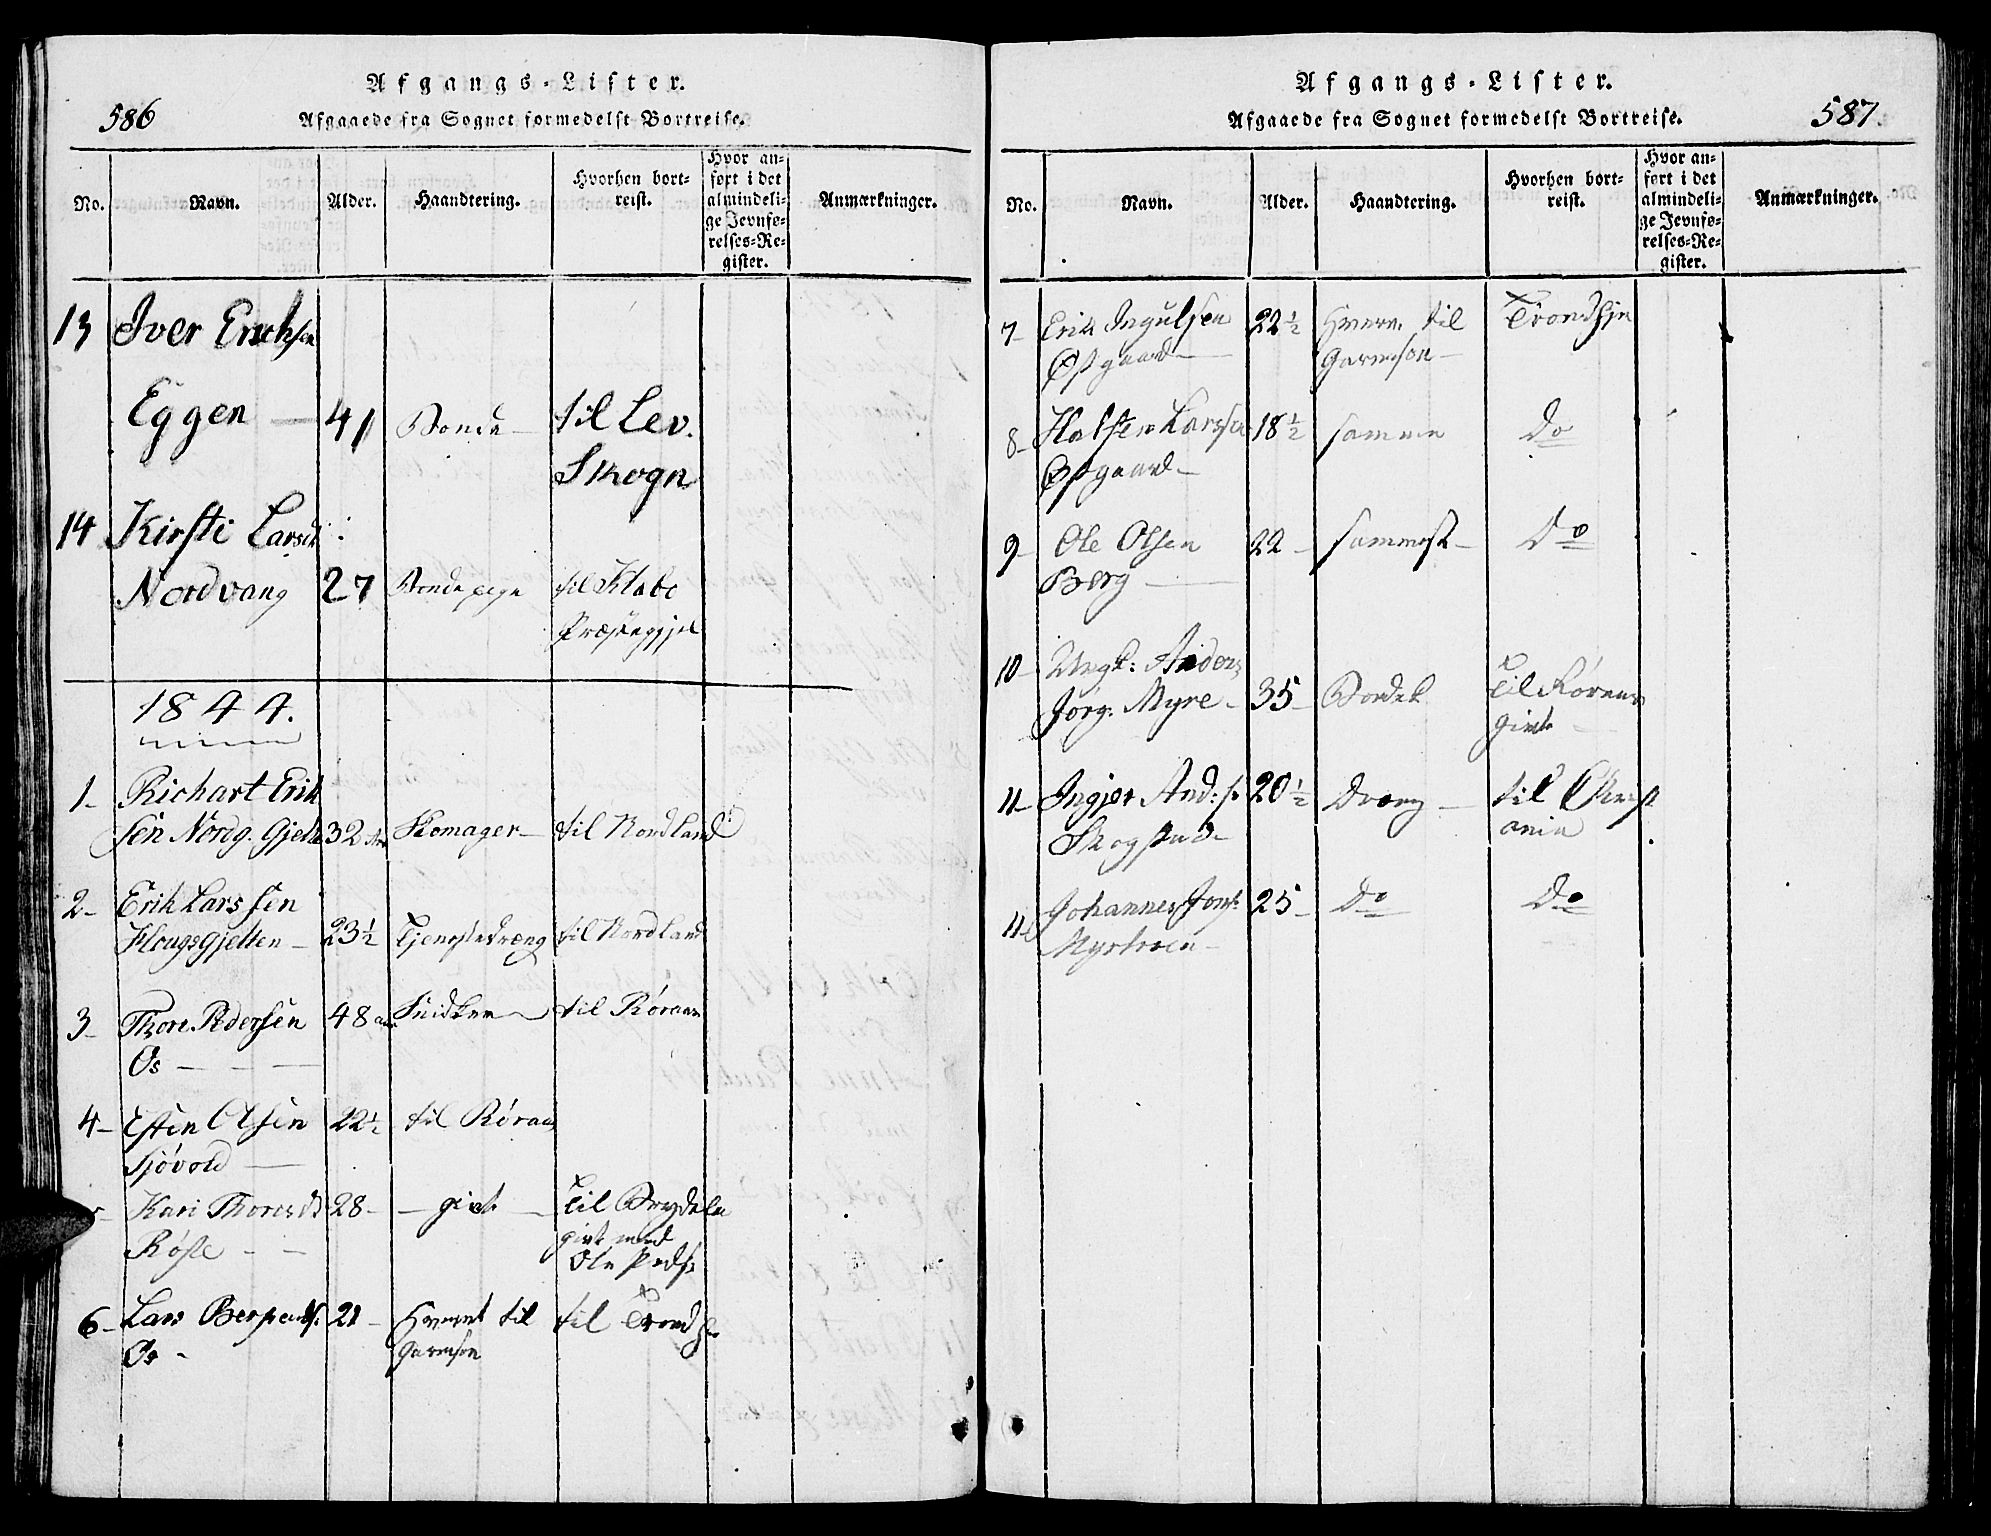 Afgangs-Lister.
586
Afgaaede fra Sognet formedelst Bortreise.
No. Navn. Alder. Haandtering. Hvorhen bortreist. Hvor anført i det almindelige Jevnførelses-Register. Anmærkninger.
13 Iver Erichsen
Eggen — 41 Bonde — til Lev.
Skogn
14 Kirsti Larsdt:
Nordvang 27 Bondepige til Klæbo
Præstegjel
1844.
1- Richart Erik
sen Nordg. Gjelt 32 Skomager — til Nordland
2- Erik Larssen
Gjelten — 23½ Tjenestedræng til Nordland
3- Thore Pedersen 48 Snidker til Røraas
Os —
4- Esten Olsen 22½ til Røraas
Sjøvold —
Kari Thoresdt 28- — givt — til Brydalen
Røste — givt med
Ole Peds:
6- Lars 21 - Hvervet til til Trondhj
Os - Garnison
Afgangs-Lister.
587.
Afgaaede fra Sognet formedelst Bortreise.
No. Navn. Alder. Haandtering. Hvorhen bortreist. Hvor anført i det almindelige Jevnførelses-Register. Anmærkninger.
7- Erik Ingulsen 22½ Hverv. til Trondhjn
Østgaard — Garnison —
8- Halsten Larssen 18½ samme do
Østgaard —
9- Ole Olsen 22 - sammest - do
Berg —
10- Ungk: Anders
Jørg. Myre - 35- til Røraas
givt —
11- Ingjer And:s. 20½ Dreng — til Christ
Skogstad — ania
11- Johannes Jons: 25- do do
Mystroen —